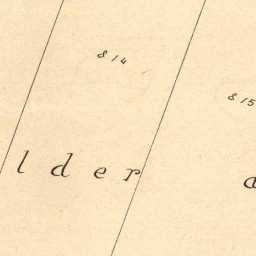 814
815
lder a